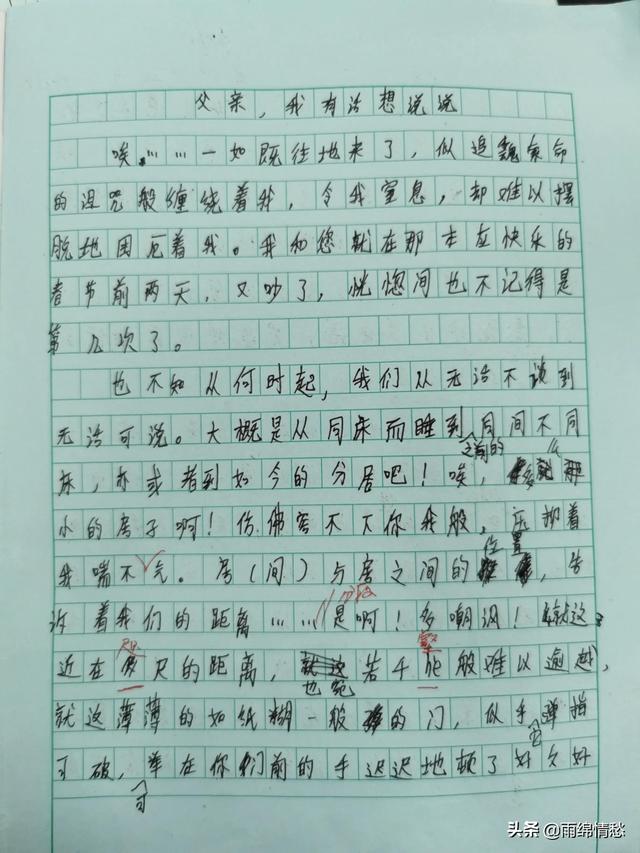 父亲，我有话想说说
唉……一如既往地来了，似追魂索命
的诅咒般缠绕着我，令我窒息，却难以摆
脱地困厄着我。我和您就在那本应快乐的
春节前两天，又吵了，恍惚间也不记得是
第几次了。
也不知从何时起，我们从无话不谈到
无话可说。大概是从同床而睡到之前的同间不同
床，亦或者到如今的分居吧！唉，多么那
小的房子啊！仿佛容不下你我般，压抑着
我喘不气。房（间）与房之间的位置，告
诉着我们的距离……是啊！多嘲讽！就这
分段
近在咫尺的距离，也宛若千 般难以逾越，
就这薄薄的如纸糊一般的门，似乎弹指
可破，举在你们前的手迟迟地顿了好久好
可
头条 @雨绵情愁